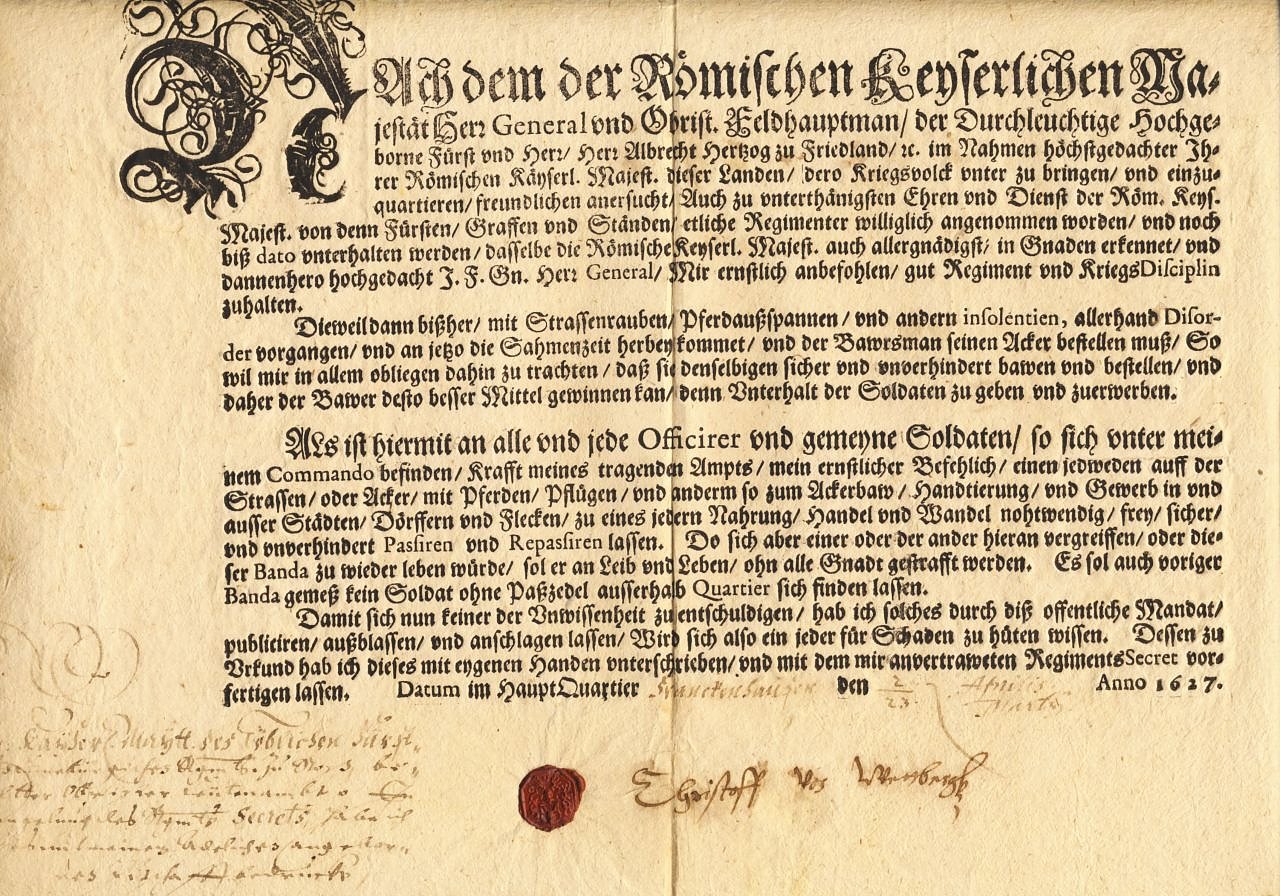 NAch dem der Römischen Keyserlichen Ma-
jestät Herr General vnd Obrist. Feldhauptman/ der Durchleuchtige Hochge-
borne Fürst vnd Herr/ Herr Albrecht Hertzog zu Friedland/ ꝛc. im Nahmen höchstgedachter Ih-
rer Römischen Käyserl. Majest. dieser Landen/ dero Kriegsvolck vnter zu bringen/ vnd einzu-
quartieren/ freundlichen anersucht/ Auch zu vnterthänigsten Ehren vnd Dienst der Röm. Keys.
Majest. von denn Fürsten/ Graffen vnd Ständen/ etliche Regimenter williglich angenommen worden/ vnd noch
biß dato vnterhalten werden/ dasselbe die Römische Keyserl. Majest. auch allergnädigst/ in Gnaden erkennet/ vnd
dannenhero hochgedacht J. F. Gn. Herr General/ Mir ernstlich anbefohlen/ gut Regiment vnd KriegsDisciplin
zuhalten.
Dieweil dann bißher/ mit Strassenrauben/ Pferdaußspannen/ vnd andern insolentien, allerhand Disor-
der vorgangen/ vnd an jetzo die Sahmenzeit herbey kommet/ vnd der Bawrsman seinen Acker bestellen muß/ So
wil mir in allem obliegen dahin zu trachten/ daß sie denselbigen sicher vnd vnverhindert bawen vnd bestellen/ vnd
daher der Bawer desto besser Mittel gewinnen kan/ denn Vnterhalt der Soldaten zu geben vnd zuerwerben.
ALs ist hiermit an alle vnd jede Officirer vnd gemeyne Soldaten/ so sich vnter mei-
nem Commando befinden/ Krafft meines tragenden Ampts/ mein ernstlicher Befehlich/ einen jedweden auff der
Strassen/ oder Acker/ mit Pferden/ Pflügen/ vnd anderm so zum Ackerbaw/ Handtierung/ vnd Gewerb in vnd
ausser Städten/ Dörffern vnd Flecken/ zu eines jedern Nahrung/ Handel vnd Wandel nohtwendig/ frey/ sicher/
vnd vnverhindert Passiren vnd Repassiren lassen. Do sich aber einer oder der ander hieran vergreiffen/ oder die-
ser Banda zu wieder leben würde/ sol er an Leib vnd Leben/ ohn alle Gnadt gestrafft werden. Es sol auch voriger
Banda gemeß kein Soldat ohne Paßzedel ausserhalb Quartier sich finden lassen.
Damit sich nun keiner der Vnwissenheit zu entschuldigen/ hab ich solches durch diß offentliche Mandat/
publiciren/ außblassen/ vnd anschlagen lassen/ Wird sich also ein jeder für Schaden zu hüten wissen. Dessen zu
Vrkund hab ich dieses mit eygenen Handen vnterschrieben/ vnd mit dem mir anvertraweten RegimentsSecret vor-
fertigen lassen. Datum im HauptQuartier Franckenhausen den 2/23 Aprilis Marty Anno 1627.
Christoff Von
Secrets